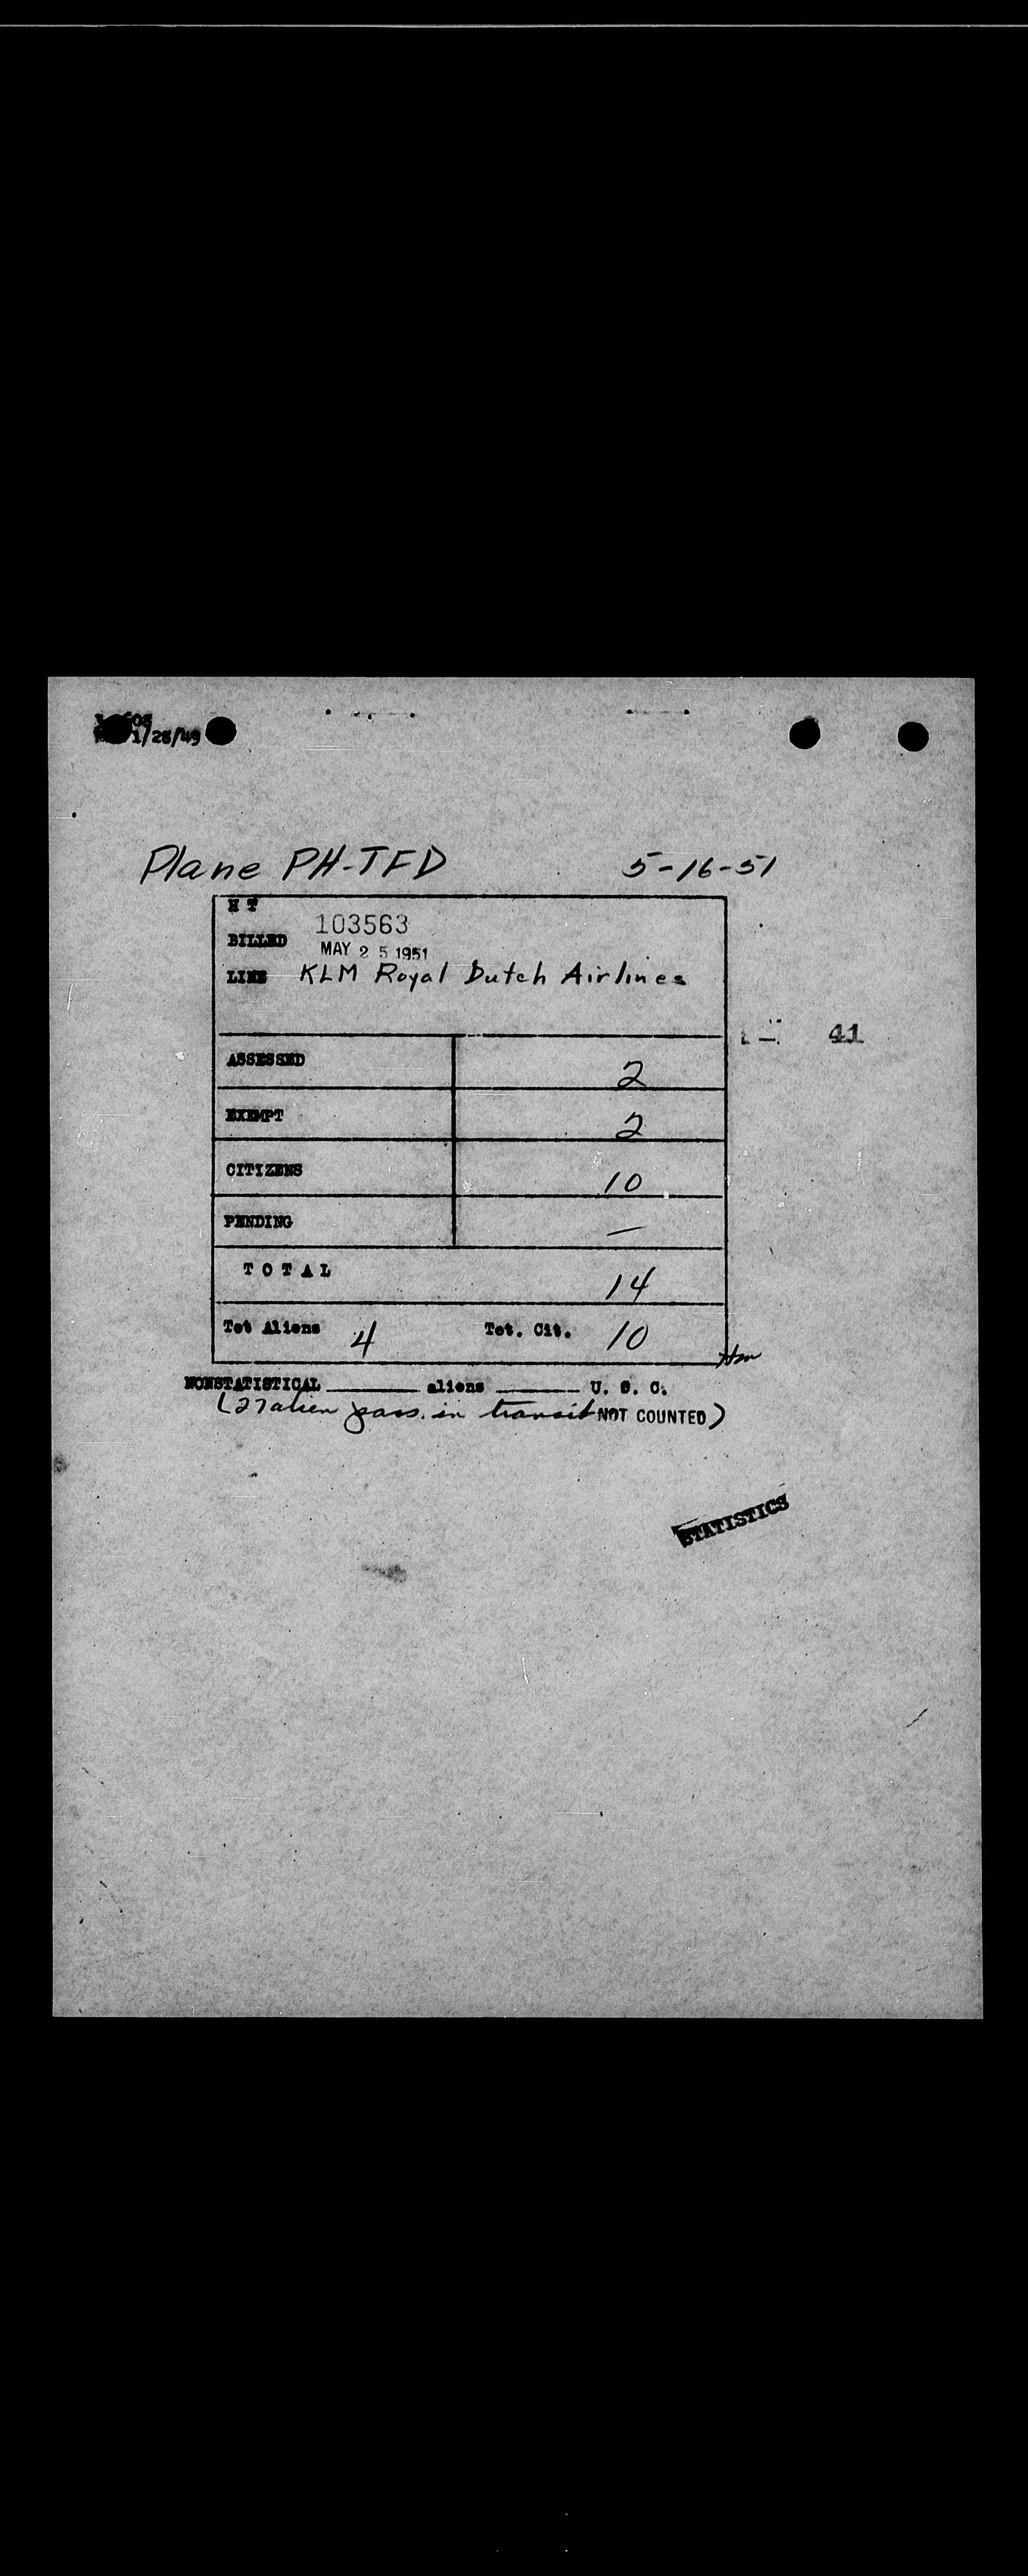 1/28/49
Plane PH-TFD 5-16-51
H T
BILLED 103563
MAY 25 1951
LINE KLM Royal Dutch Airlines
41
ASSESSED 2
EXEMPT 2
CITIZENS 10
PENDING —
TOTAL 14
Tot Aliens 4 Tot. Cit. 10
NONSTATISTICAL ______ aliens ______ U. S. C.
(27 alien pass. in transit NOT COUNTED)
STATISTICS